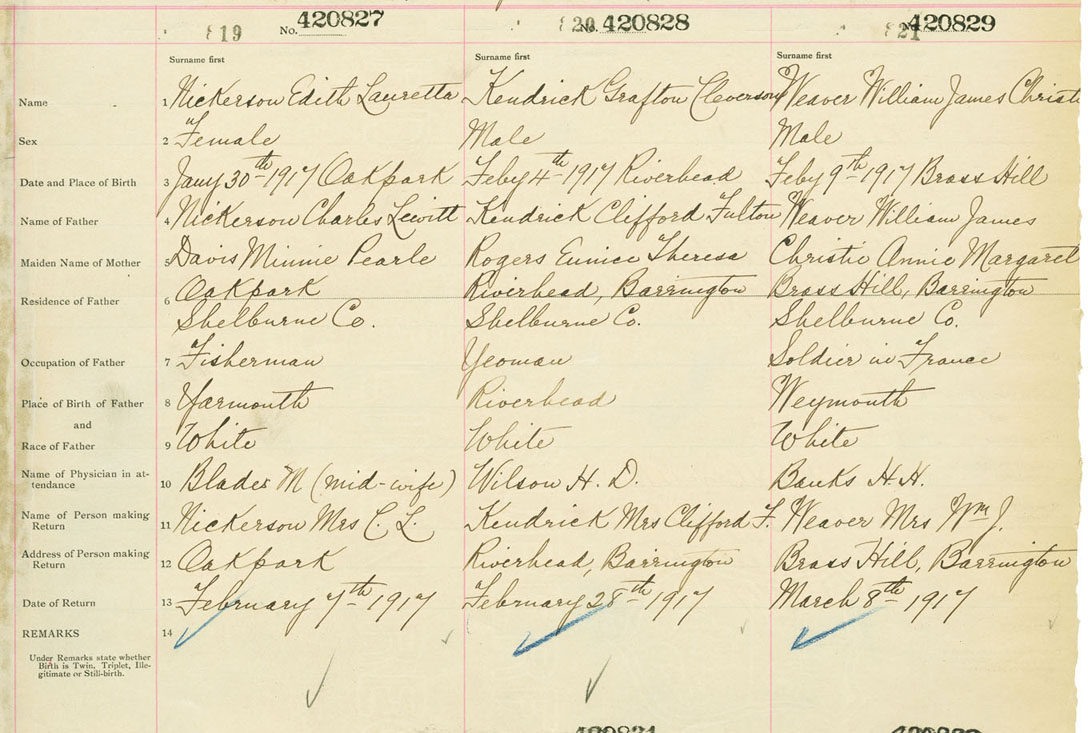 819 No. 420827 820 No. 420828 821 No. 420829
Surname first Surname first Surname first
Name 1 Nickerson Edith Lauretta Kendrick Grafton Cleverson Weaver William James Christ
Sex 2 Female Male Male
Date and Place of Birth 3 Jany 30th 1917 Oakpark Feby 4th 1917 Riverhead Feby 9th 1917 Brass Hill
Name of Father 4 Nickerson Charles Lewitt Kendrick Clifford Fulton Weaver William James
Maiden Name of Mother 5 Davis Minnie Pearle Rogers Eunice Theresa Christie Annie Margaret
Residence of Father 6 Oakpark Riverhead, Barrington Brass Hill, Barrington
Shelburne Co. Shelburne Co. Shelburne Co.
Occupation of Father 7 Fisherman Yeoman Soldier in France
Place of Birth of Father 8 Yarmouth Riverhead Weymouth
and
Race of Father 9 White White White
Name of Physician in at-
tendance 10 Blades M (mid-wife) Wilson H. D. Banks H. H.
Name of Person making
Return 11 Nickerson Mrs C. L. Kendrick Mrs Clifford F. Weaver Mrs Wm J.
Address of Person making
Return 12 Oakpark Riverhead, Barrington Brass Hill, Barrington
Date of Return 13 February 7th 1917 February 28th 1917 March 8th 1917
REMARKS 14
Under Remarks state whether
Birth is Twin, Triplet, Ille-
gitimate or Still-birth.